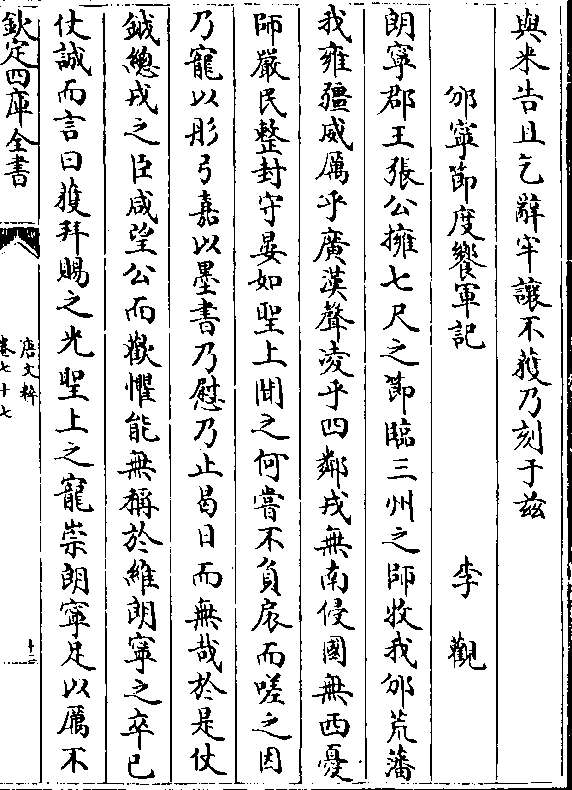 與米告且乞辭牢讓不獲乃刻于茲
邠寧節度饗軍記 李觀
朗寧郡王張公擁七尺之節臨三州之師牧我邠荒藩
我雍疆威厲乎廣漠聲凌乎四鄰戎無南侵國無西憂
師嚴民整封守晏如聖上聞之何嘗不負扆而嗟之因
乃寵以彤弓嘉以墨書乃慰乃止曷日而無哉於是仗
鉞總戎之臣咸望公而歡懼能無稱於維朗寧之卒已
仗誠而言曰獲拜賜之光聖上之寵崇朗寧足以厲不
欽定四庫全書
唐文粹
卷七十七
十二